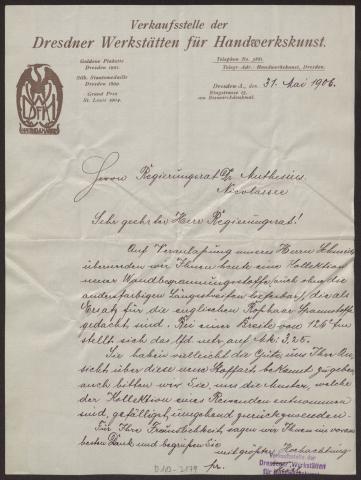 Verkaufsstelle der
Dresdner Werkstätten für Handwerkskunst.
Goldene Plakette
Dresden 1901.
Silb. Staatsmedaille
Dresden 1899.
Grand Prix
St. Louis 1904.
Telephon Nr. 7681.
Telegr.-Adr.: Handwerkskunst, Dresden.
Dresden-A., den 31. Mai 1906.
Ringstrasse 15,
am Bismarckdenkmal.
DWfHK
HANDMARKE
Herrn Regierungsrat Dr. Muthesius
Nicolassee
Sehr geehrter Herr Regierungsrat!
Auf Veranlassung unseres Herrn Schmidt
übersenden wir Ihnen heute eine Kollektion
neuer Wandbespannungsstoffe (auch ohne die
andersfarbigen Längsstreifen lieferbar), die als
Ersatz für die englischen Rophaar Spannstoffe
gedacht sind. Bei einer Breite von 126 cm
stellt sich das lfd. mtr. auf Mk: 3,25.
Sie haben vielleicht die Güte, uns Ihre An-
sicht über diese neue Stoffart bekannt zu geben,
auch bitten wir Sie, uns die Muster, welche
der Kollektion eines Reisenden entnommen
sind, gefälligst umgehend zurückzusenden.
Für Ihre Freundlichkeit sagen wir Ihnen im voraus
besten Dank und begrüßen Sie
mit größter Hochachtung
Verkaufsstelle der
Dresdner Werkstätten
pr.
D 102-2179